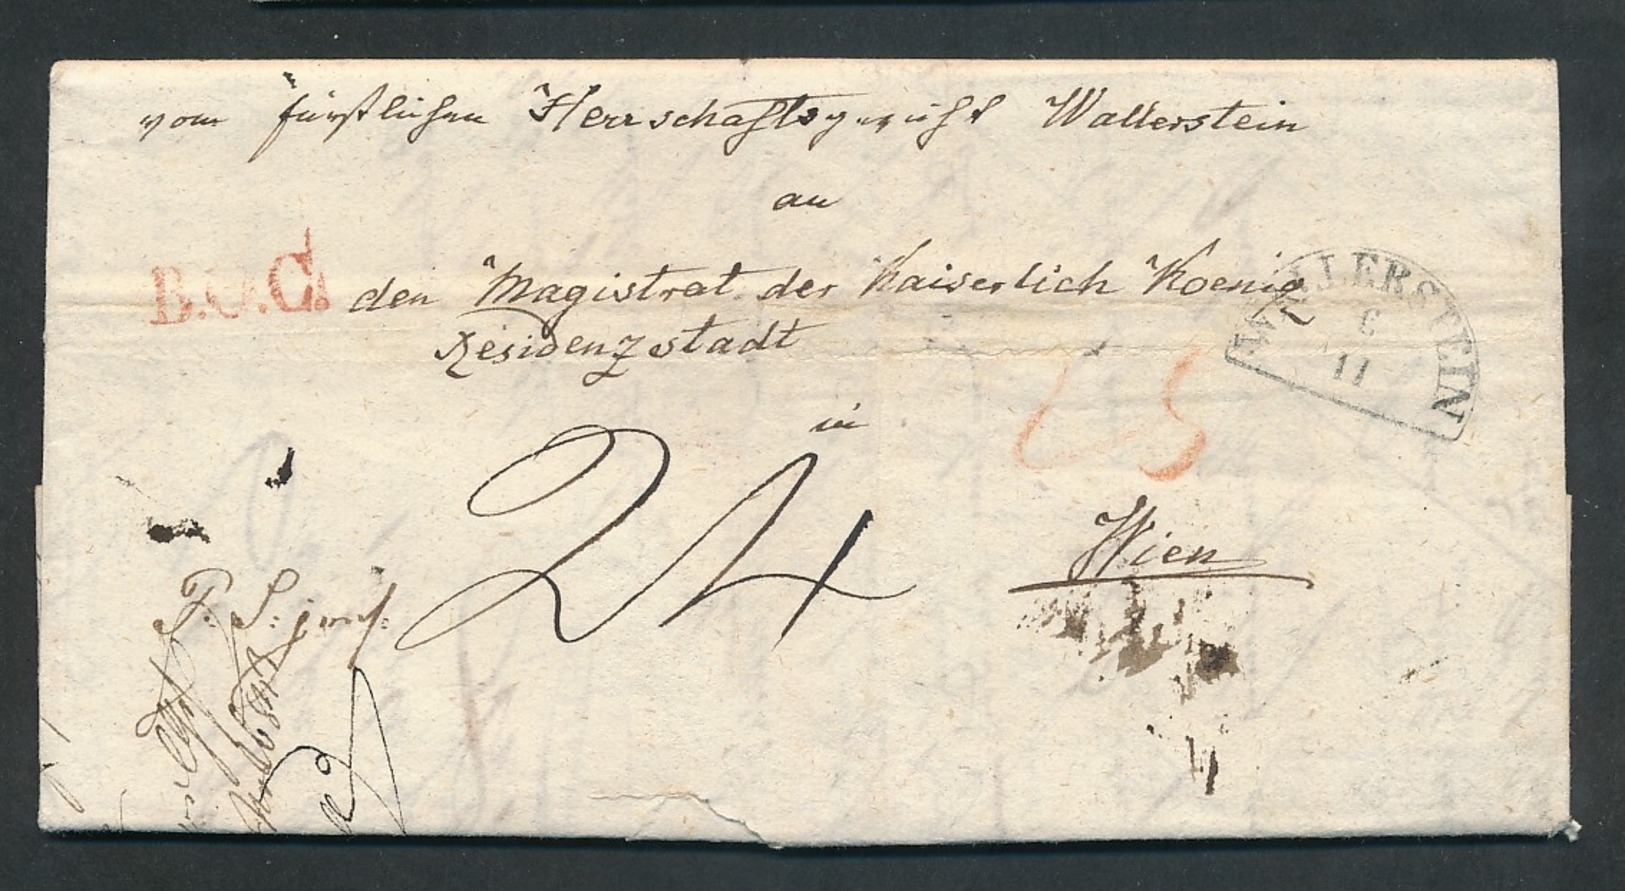 vom fürstlichen Herrschaftsgericht Wallerstein
an
B.O.C.
den Magistrat der Kaiserlich Koenig
Residenzstadt
WALLERSTEIN
6
11
in
24
Wien
P. S.